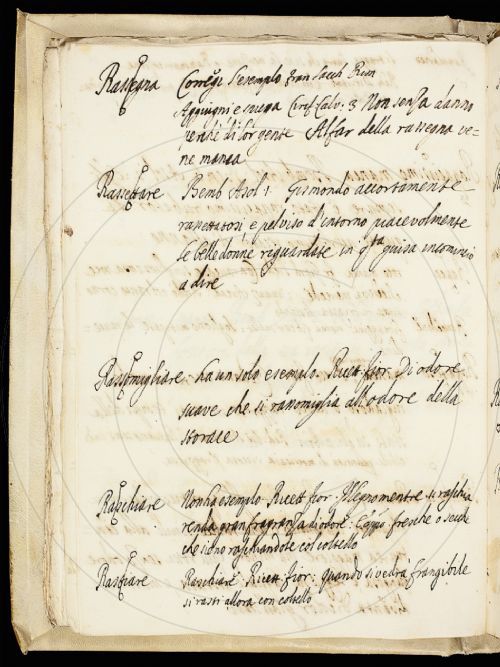 Rassegna Corregi l'esempio Fran Sacch Rim
Aggiugni e spiega Ciriff. Calv: 3 Non senza danno
perché di lor gente Alfar della rassegna ve-
ne manca
Rassettare Bemb Asol 1. Gismondo accortamente
rassettatosi, e pel viso d'intorno piacevolmente
le belle donne riguardate in q.ta guisa incominciò
a dire
Rassomigliare ha un solo esempio. Ricett. fior. Di odore
suave che si rassomiglia all'odore della
storace
Raschiare Non ha esempio Ricett fior. Il legno mentre si raschia
renda gran fragranza di odore: fresche o secche
che sieno raschiandole col coltello
Raschiare Ricett fior: quando si vedrà frangibile
si rasti allora con coltello